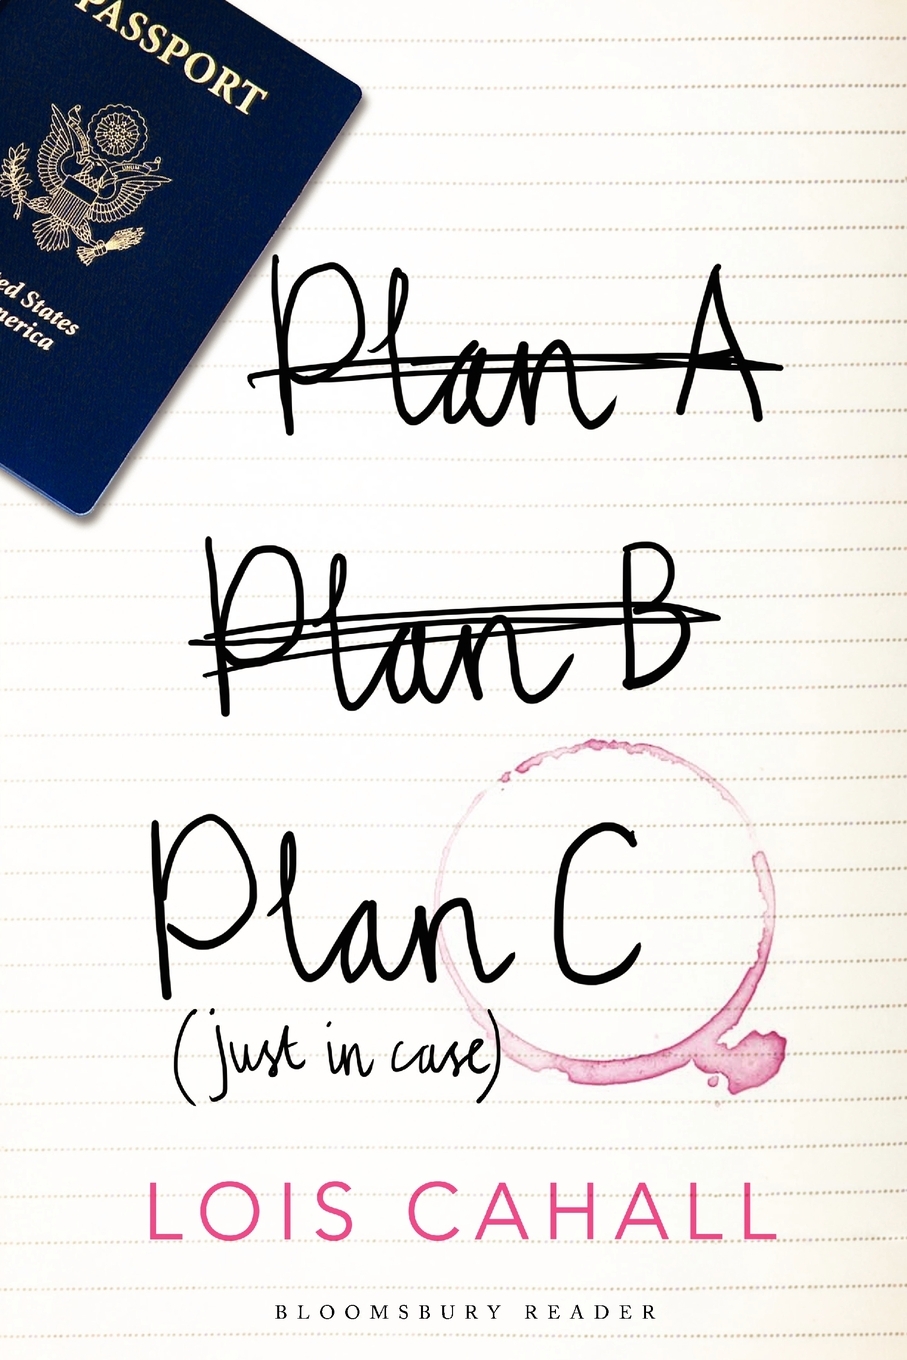 PASSPORT
ed States
merica
Plan A
Plan B
Plan C
(just in case)
LOIS CAHALL
BLOOMSBURY READER